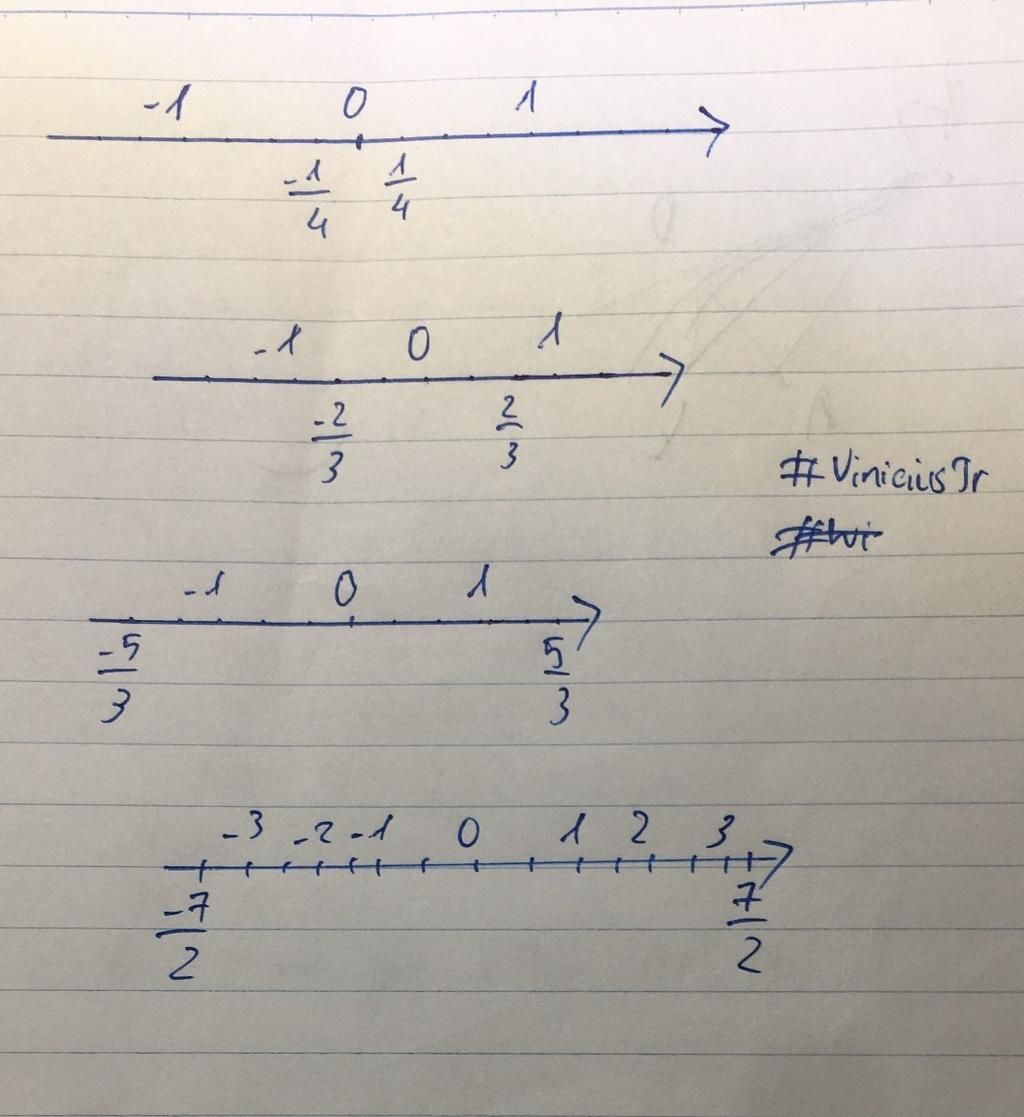 -1 0 1
-1/4 1/4
-1 0 1
-2/3 2/3
#ViniciusJr
-1 0 1
-5/3 5/3
-3 -2 -1 0 1 2 3
-7/2 7/2